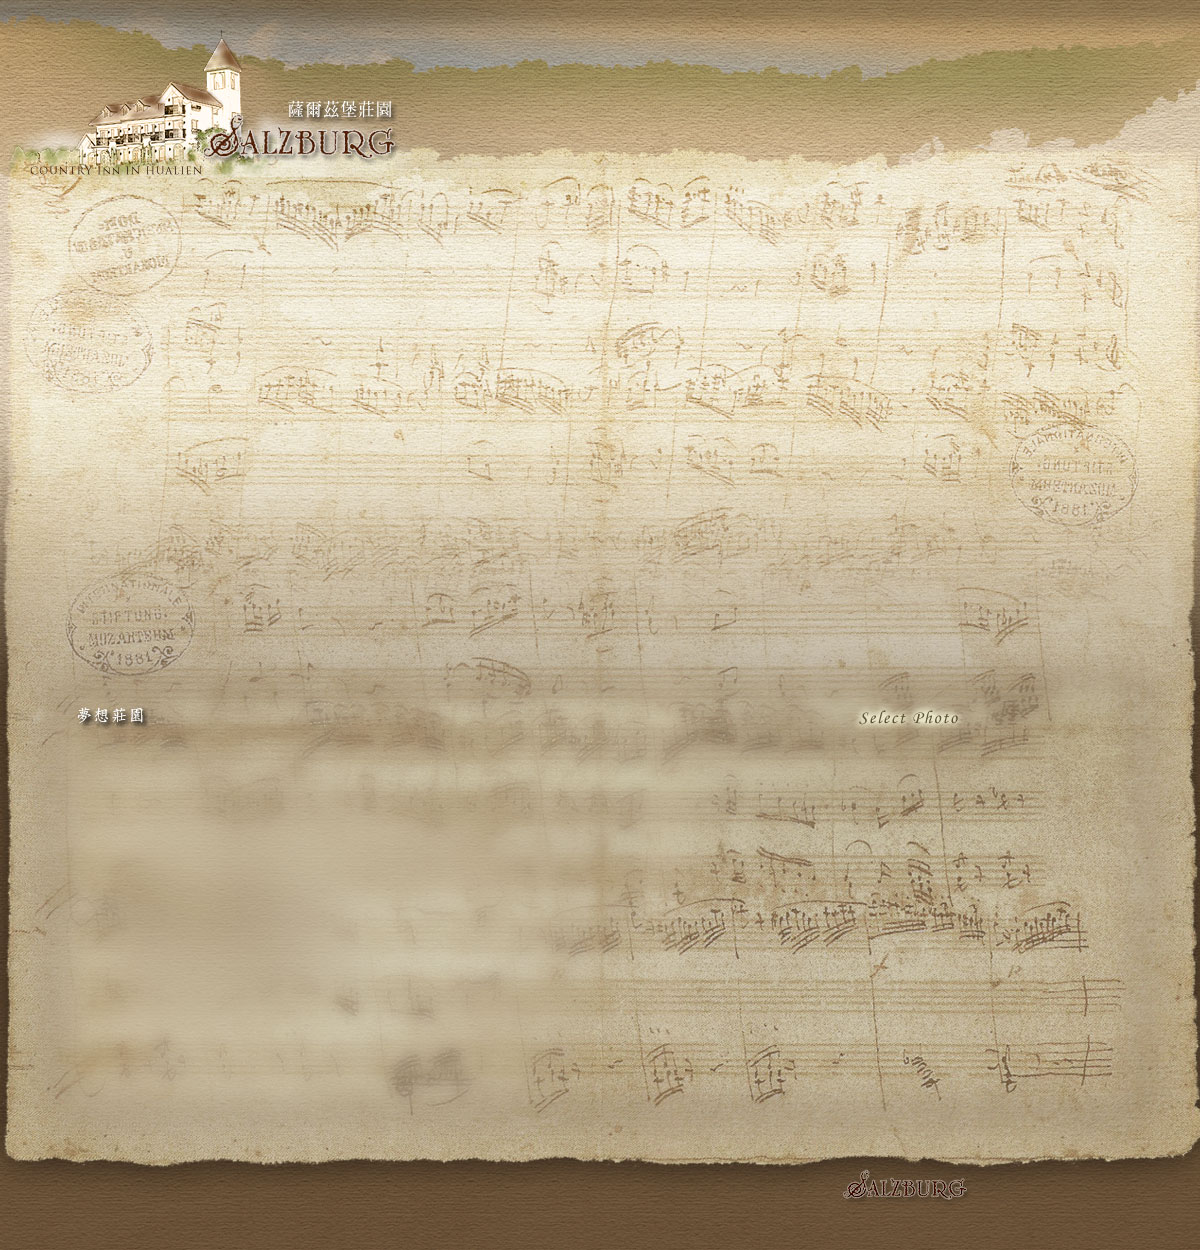 薩爾茲堡莊園
SALZBURG
COUNTRY INN IN HUALIEN
INTERNATIONALE
STIFTUNG:
MOZARTEUM
1881
夢想莊園
Select Photo
SALZBURG